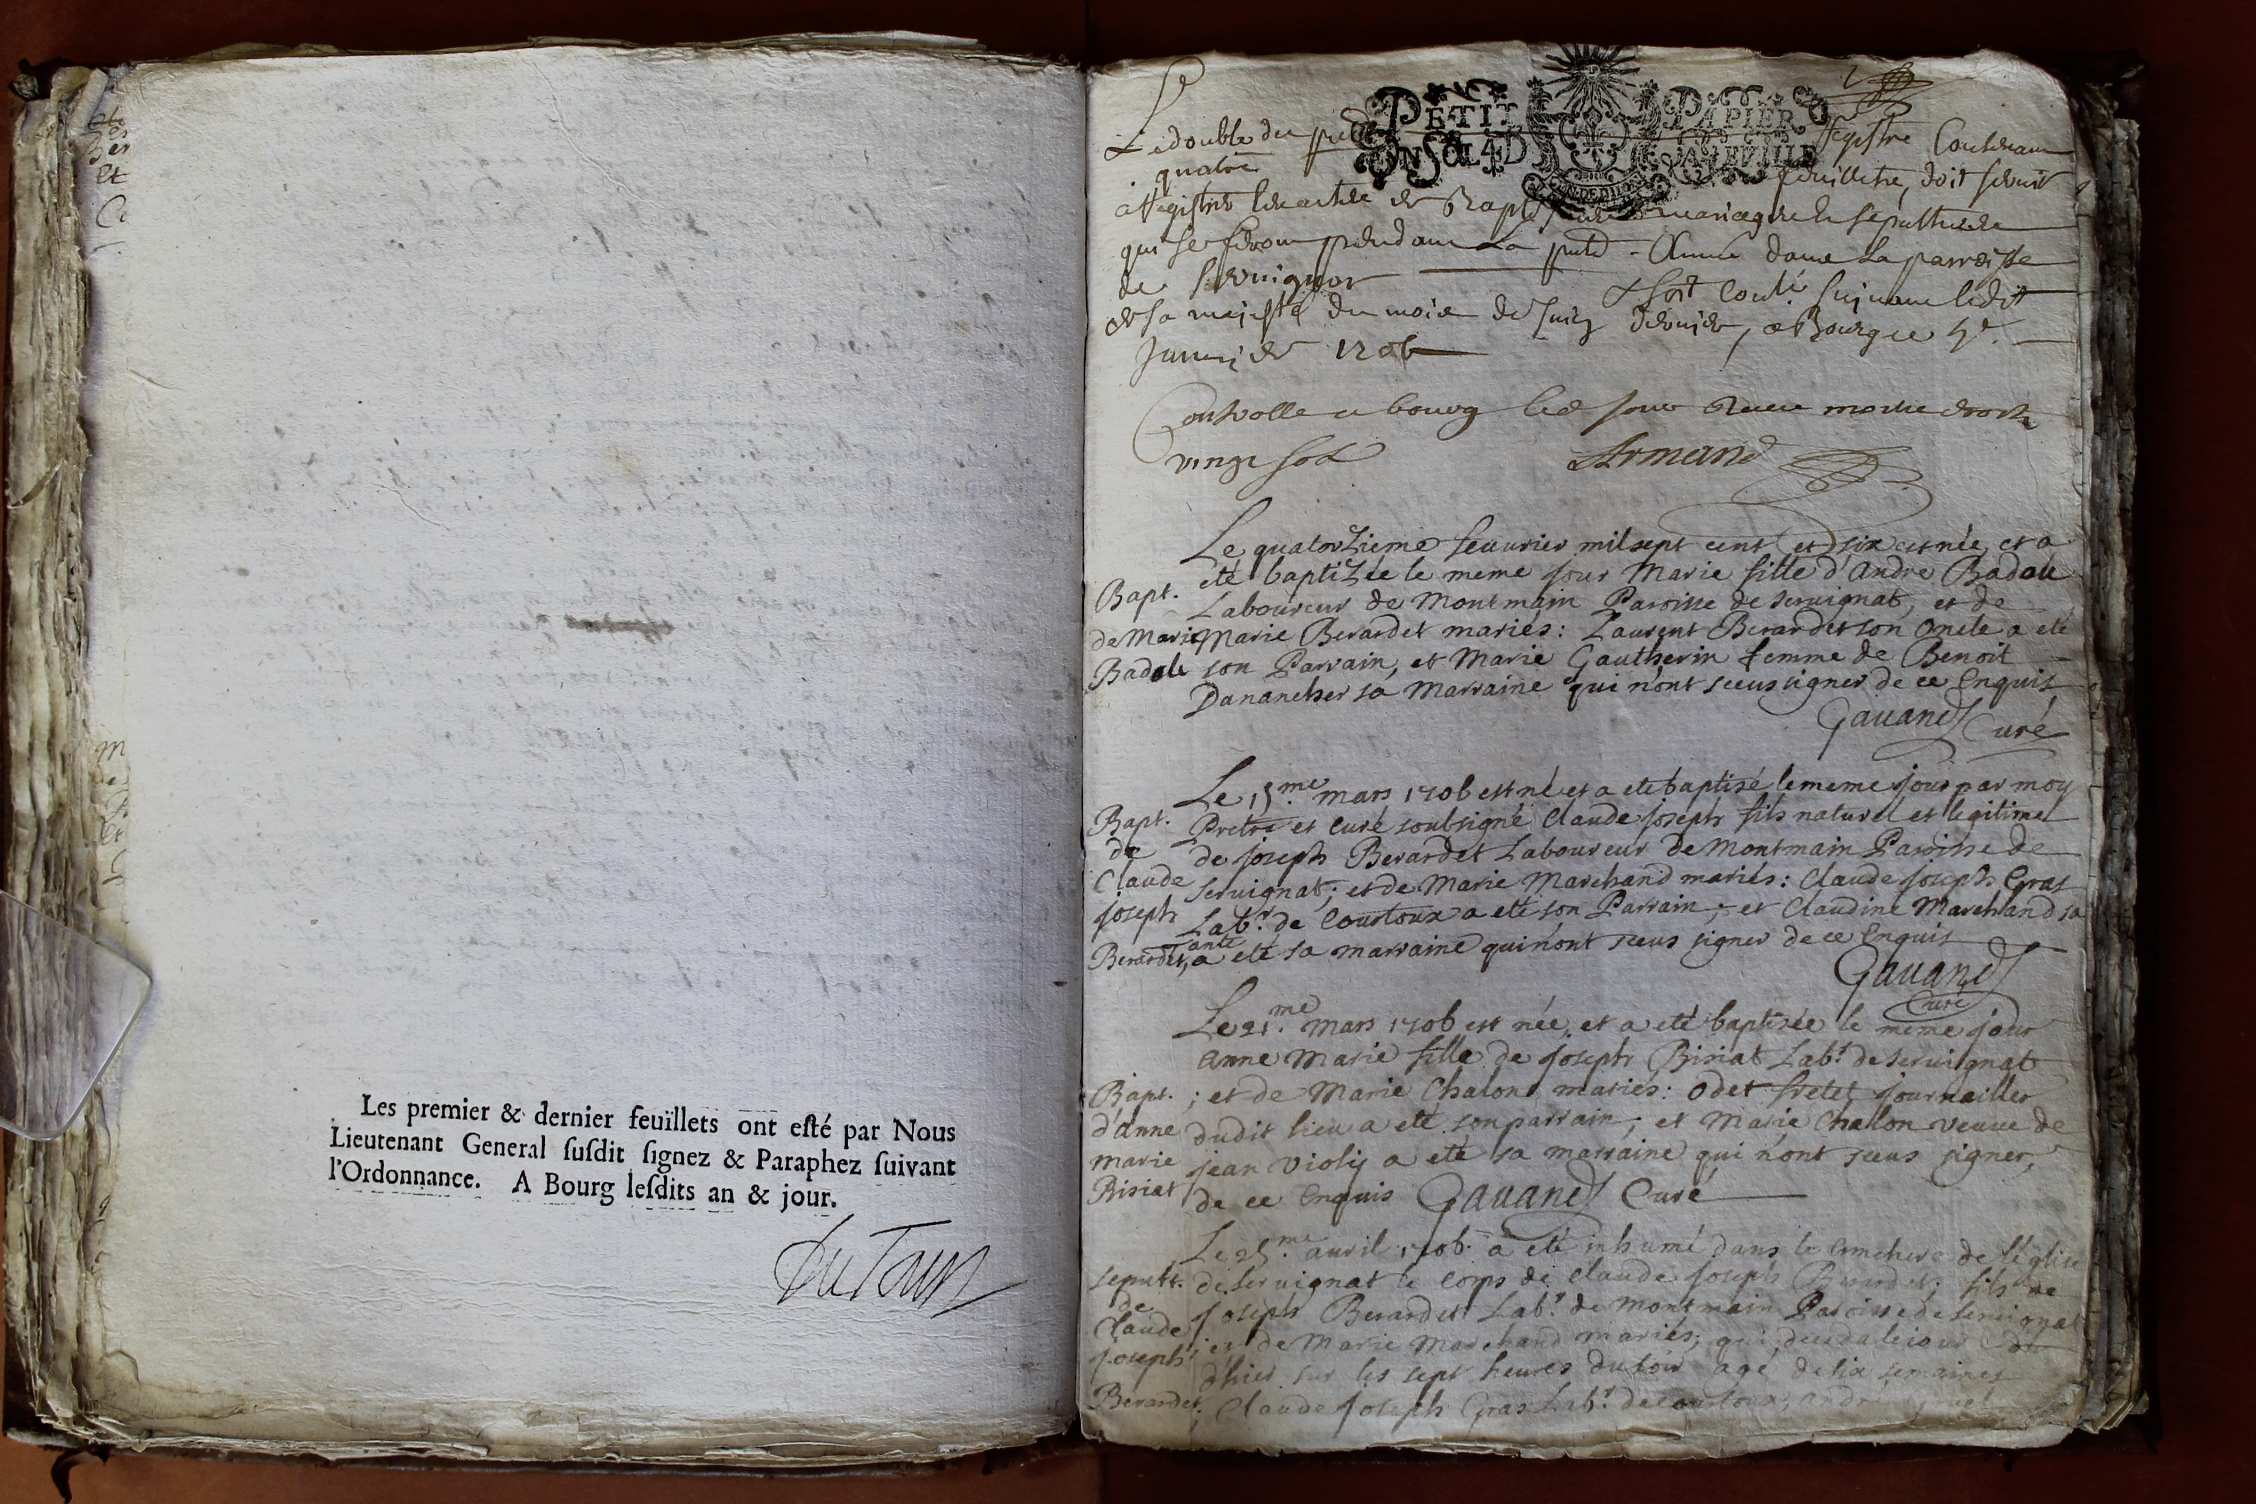 Les premier & dernier feuïllets ont esté par Nous
Lieutenant General susdit signez & Paraphez suivant
l'Ordonnance. A Bourg lesdits an & jour.
PETIT PAPIER
UN SOL 4 D LA FEVILLE
Le double du
Registre Contenant
quatre feuilletz, doit servir
a Registrer les actes de Baptesmes mariages et sepultures
qui se feront pendant La Année dans La parroisse
de Servignat
de sa majesté du mois de juin dernier, a Bourg ce
Janvier 1706
Controlle a bourg led jour
vingt sols Armand
Le quatorzieme feuurier mil sept cent et six est née, et a
été baptizée le meme jour Marie fille d'Andre Badou
Bapt. Laboureur de Montmain Paroisse de seruignat, et de
de Marie Marie Berardet mariés: Laurent Berardet son oncle a eté
son Parrain, et Marie Gautherin femme de Benoit
Dananchersa Marraine qui n'ont sceus signer de ce Enquis
Gauand Curé
Le 15.me mars 1706 est né et a eté baptisé le meme jour par moy
Bapt. Pretre et Curé soubsigné Claude joseph fils naturel et legitime
de de joseph Berardet Laboureur de Montmain Paroisse de
Claude seruignat; et de Marie Marchand mariés: Claude joseph Gras
joseph Lab.r de Courtoux a eté son Parrain; et Claudine Marchand sa
Berardet tante a eté sa marraine qui n'ont sceus signer de ce Enquis
Gauand
Curé
Le 21.me Mars 1706 est née, et a eté baptisée le meme jour
Anne Marie fille de joseph Bisiat Lab.r de seruignat
Bapt. ; et de Marie Chalon mariés: Odet journailler
d'anne dudit lieu a eté son parrain; et Marie Chalon veuue de
marie jean Violy a eté sa marraine qui n'ont sceus signer,
Bisiat de ce Enquis Gauand Curé
Le 25.me auril 1706. a eté inhumé dans le Cimetiere de l'eglise
sepult. de seruignat le Corps de Claude joseph Berardet; fils de
de joseph Berardet Lab.r de Montmain Paroisse de seruignat
Claude
joseph ; et de Marie Marchand mariés; qui deceda le jour
d'hier sur les sept heures du soir agé de six semaines
Berardet. Claude joseph Gras Lab.r de Courtoux;